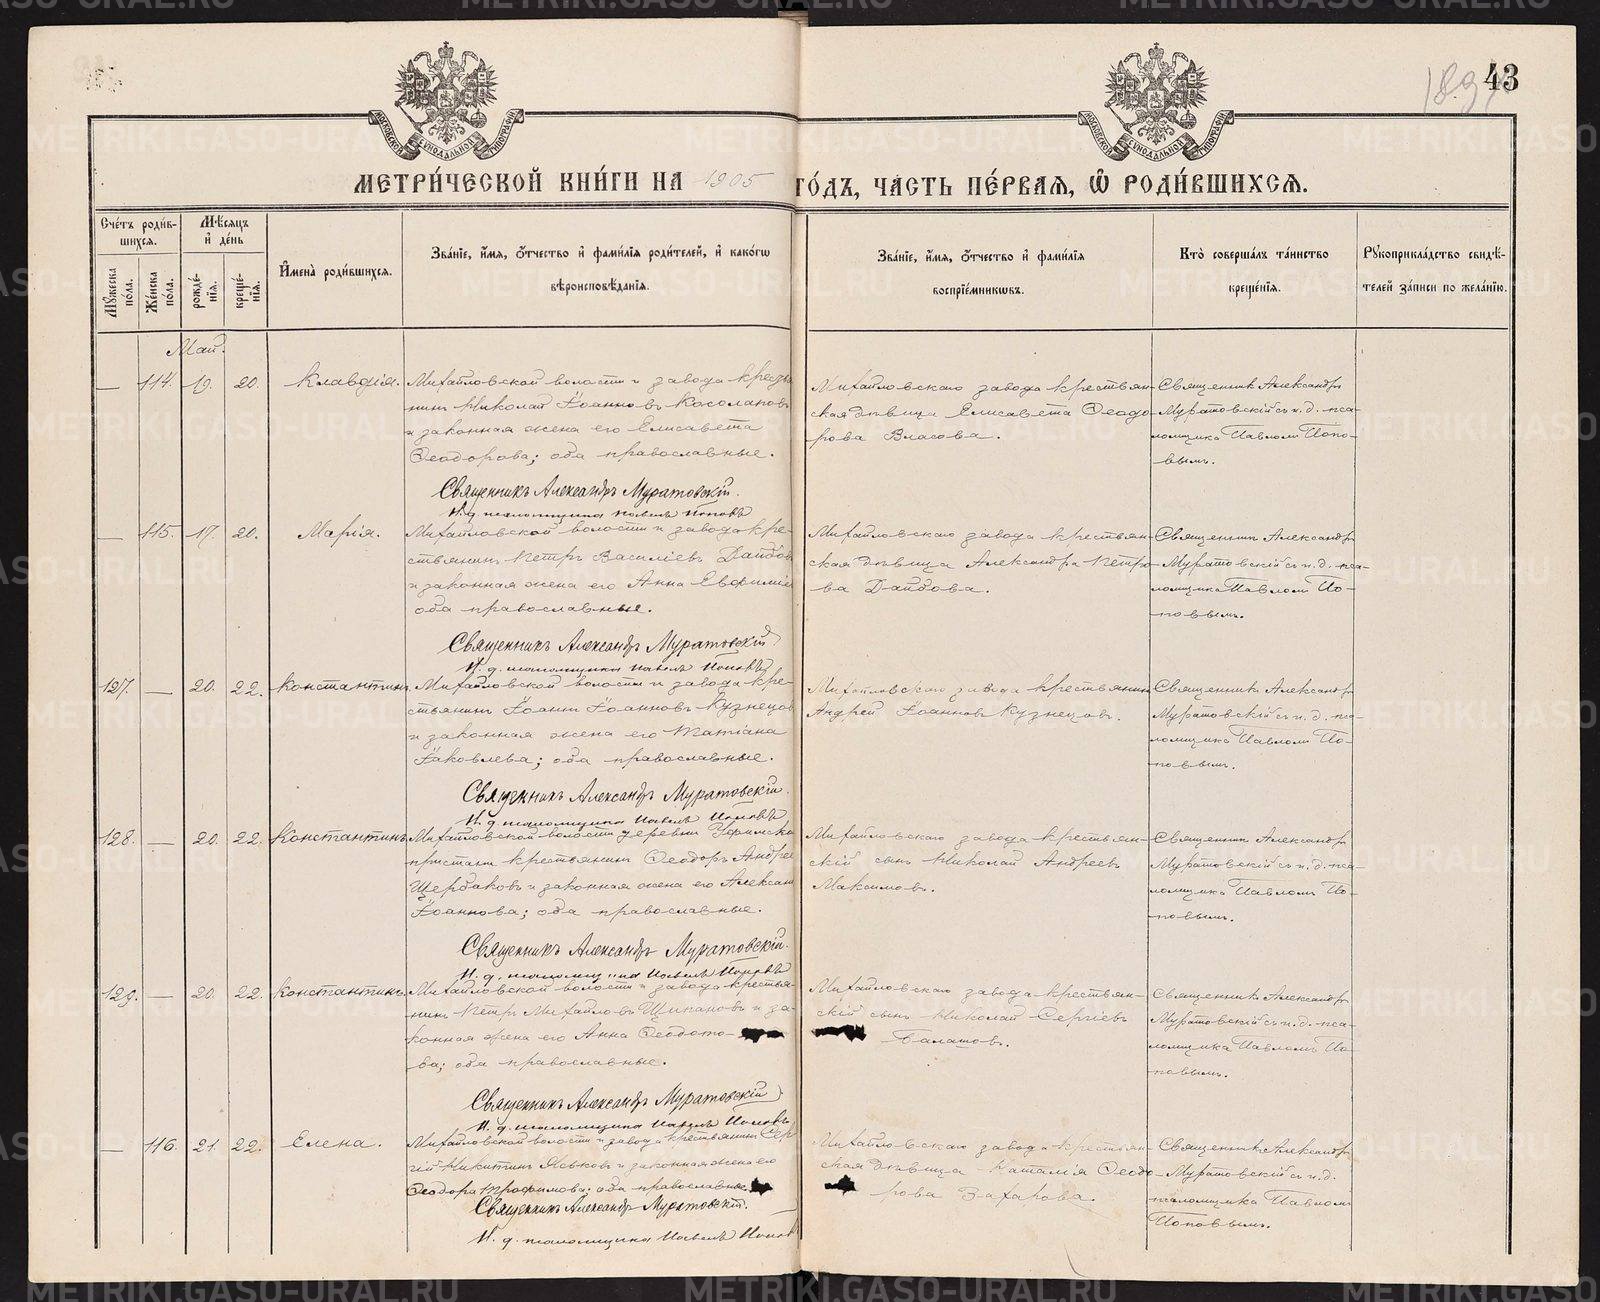 43
189
МОСКОВСКОЙ СѴНОДАЛЬНОЙ ТИПОГРАФІИ
МОСКОВСКОЙ СѴНОДАЛЬНОЙ ТИПОГРАФІИ
МЕТРИ́ЧЕСКОЙ КНИ́ГИ НА 1905 ГО́ДЪ, ЧА́СТЬ ПЕ́РВАЯ, Ѡ҆ РОДИ́ВШИХСЯ.
Сче́тъ роди́в-
шихся.
Мѣ́сяцъ
и҆ де́нь
Мꙋ́жеска по́ла.
Же́нска по́ла.
рожде́-
нїѧ.
креще́-
нїѧ.
И҆мена̀ роди́вшихся.
Зва́нїе, и҆́мѧ, ѻ҆́тчество и҆ фами́лїѧ роди́телей, и҆ како́гѡ
вѣроисповѣ́данїѧ.
Зва́нїе, и҆́мѧ, ѻ҆́тчество и҆ фами́лїѧ
воспрїе́мникѡвъ.
Кто̀ соверша́лъ та́инство
креще́нїѧ.
Рꙋкоприкла́дство свидѣ́-
телей за́писи по жела́нїю.
Май.
— 114. 19. 20. Клавдія. Михайловской волости и завода кресть
нинъ Николай Іоанновъ Косолаповъ
и законная жена его Елисавета
Ѳеодорова; оба православные.
Священникъ Александръ Муратовскій.
И. д. псаломщика Павелъ Поповъ
Михайловскаго завода крестьян-
ская дѣвица Елисавета Ѳеодо-
рова Власова.
Священникъ Александръ
Муратовскій съ и. д. пса-
ломщика Павломъ Попо-
вымъ.
— 115. 17. 20. Марія. Михайловской волости и завода кре-
стьянинъ Петръ Василіевъ Дайбов
и законная жена его Анна Евфиміе
оба православные.
Священникъ Александръ Муратовскій
И. д. псаломщика Павелъ Поповъ
Михайловскаго завода крестьян-
ская дѣвица Александра Петро-
ва Дайбова.
Священникъ Александръ
Муратовскій съ и. д. пса-
ломщика Павломъ По-
повымъ.
127. — 20. 22. Константинъ Михайловской волости и завода кре-
стьянинъ Іоаннъ Іоанновъ Кузнецов
и законная жена его Татіана
Іаковлева; оба православные.
Священникъ Александръ Муратовскій.
И. д. псаломщика Павелъ Поповъ
Михайловскаго завода крестьянинъ
Андрей Іоанновъ Кузнецовъ.
Священникъ Александръ
Муратовскій съ и. д. пса-
ломщика Павломъ По-
повымъ.
128. — 20. 22. Константинъ Михайловской волости деревни Уфимско
пристани крестьянинъ Ѳеодоръ Андрее
Щербаковъ и законная жена его Алексан
Іоаннова; оба православные.
Священникъ Александръ Муратовскій.
И. д. псаломщика Павелъ Поповъ
Михайловскаго завода крестьян-
скій сынъ Николай Андреевъ
Максимовъ.
Священникъ Александръ
Муратовскій съ и. д. пса-
ломщика Павломъ По-
повымъ.
129. — 20. 22. Константинъ Михайловской волости и завода крестья-
нинъ Петръ Михайловъ Щипановъ и за-
конная жена его Анна Ѳеодото-
ва; оба православные.
Священникъ Александръ Муратовскій
И. д. псаломщика Павелъ Поповъ
Михайловскаго завода крестьян-
скій сынъ Николай Сергіевъ
Балашовъ.
Священникъ Александръ
Муратовскій съ и. д. пса-
ломщика Павломъ По-
повымъ.
— 116. 21. 22. Елена. Михайловской волости и завода крестьянинъ Сер
гій Никитинъ Яськовъ и законная жена его
Ѳеодора Трофимова; оба православные
Священникъ Александръ Муратовскій.
И. д. псаломщика Павелъ Попов
Михайловскаго завода крестьян-
ская дѣвица Наталія Ѳеодо-
рова Захарова.
Священникъ Александръ
Муратовскій съ и. д.
псаломщика Павломъ
Поповымъ.
METRIKI.GASO-URAL.RU